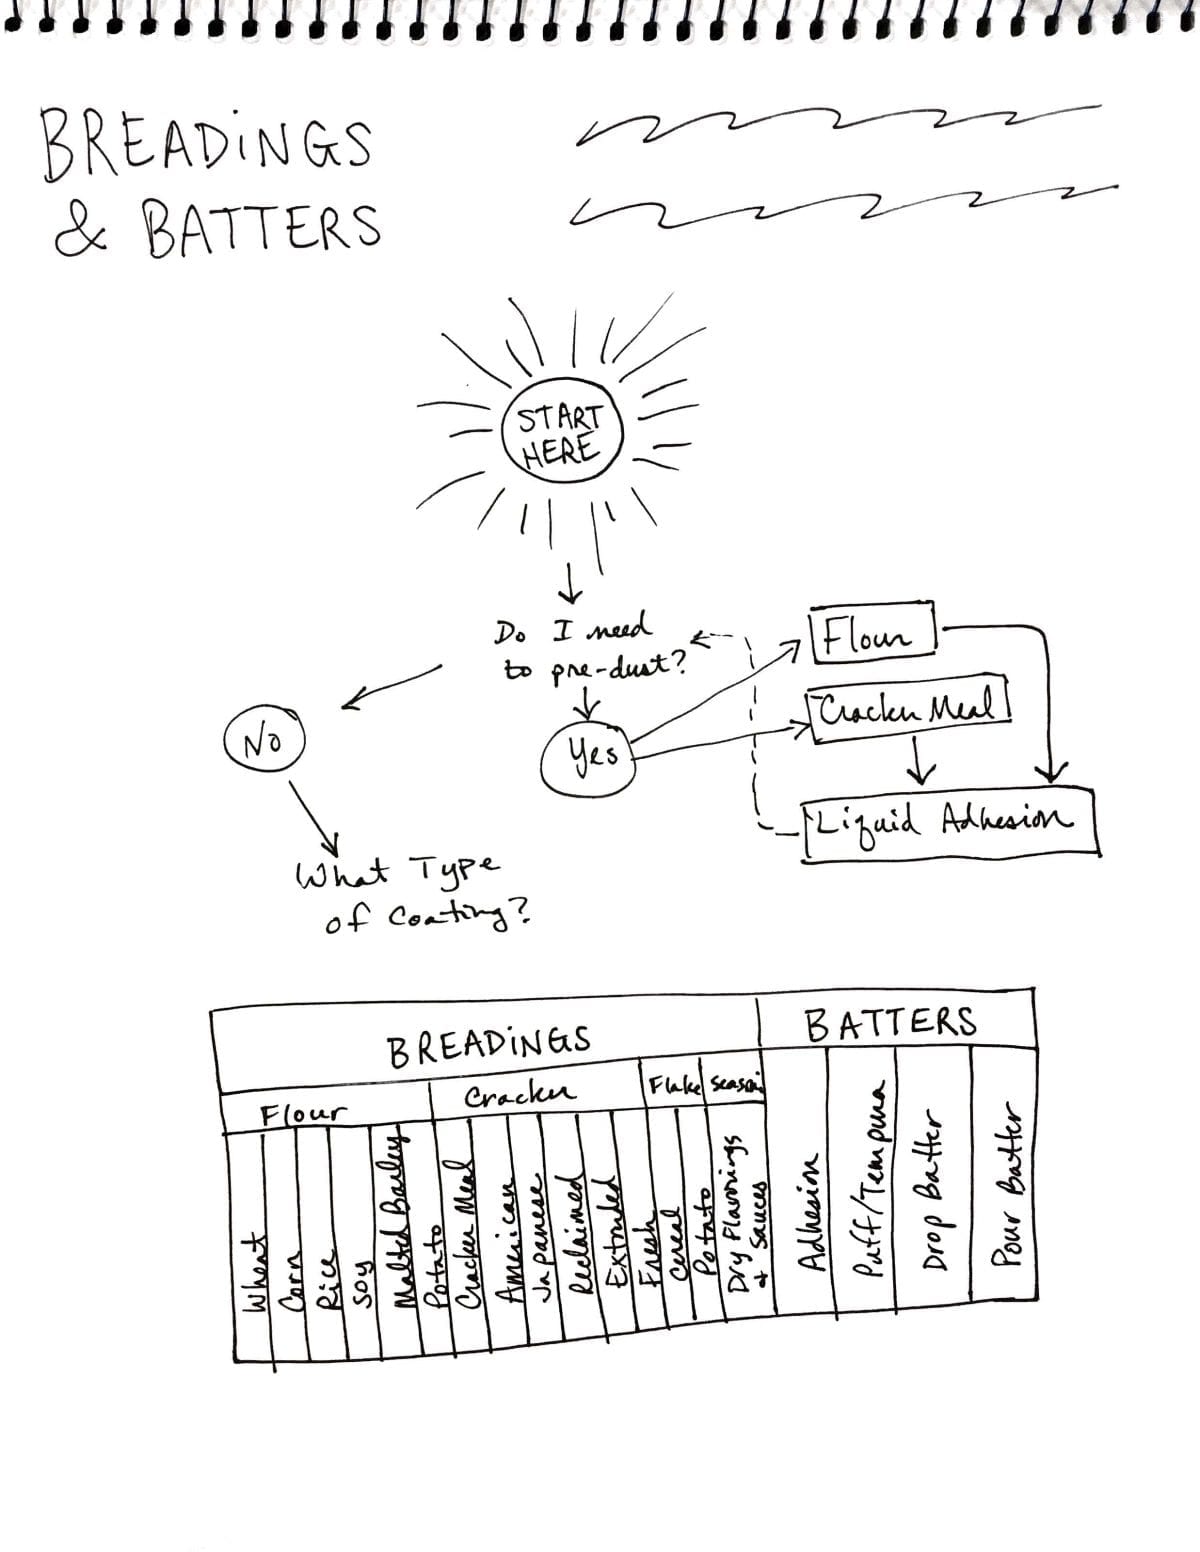 BREADINGS
& BATTERS
START
HERE
Do I need
to pre-dust?
No
Yes
Flour
Cracker Meal
Liquid Adhesion
What Type
of Coating?
BREADINGS
BATTERS
Flour
Cracker
Flake
Season
Wheat
Corn
Rice
Soy
Malted Barley
Potato
Cracker Meal
American
Japanese
Reclaimed
Extruded
Fresh
Cereal
Potato
Dry Flavorings
+ Sauces
Adhesion
Puff/Tempura
Drop Batter
Pour Batter